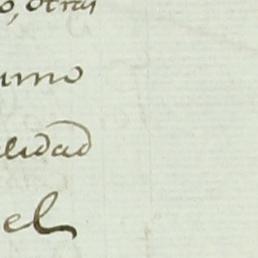 o, otras
umo
alidad
el